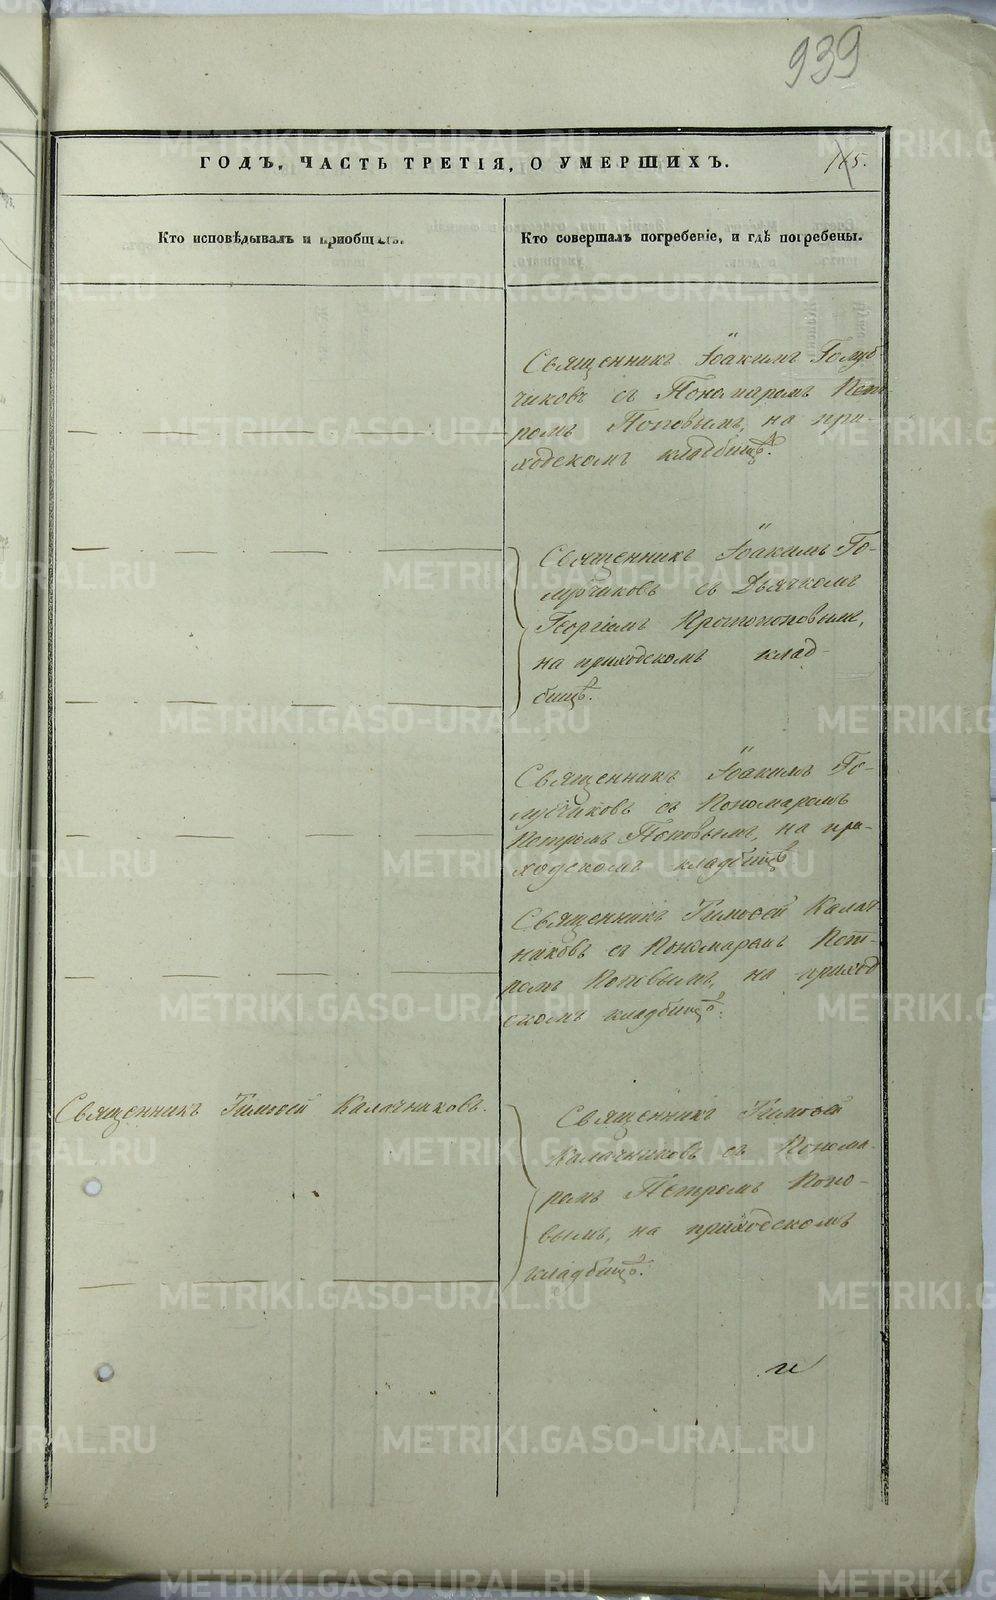 939
ГОДЪ, ЧАСТЬ ТРЕТІЯ, О УМЕРШИХЪ.
115.
Кто исповѣдывалъ и приобщалъ.
Кто совершалъ погребеніе, и гдѣ погребены.
Священникъ Іоакимъ Голуб-
чиковъ съ Пономаремъ Пет-
ромъ Поповымъ, на при-
ходскомъ кладбищѣ.
Священникъ Іоакимъ Го-
лубчиковъ съ Дьячкомъ
Георгіемъ Протопоповымъ,
на приходскомъ клад-
бищѣ.
Священникъ Іоакимъ Го-
лубчиковъ съ Пономаремъ
Петромъ Поповымъ, на при-
ходскомъ кладбищѣ
Священникъ Тимоѳей Калач-
никовъ съ Пономаремъ Пет-
ромъ Поповымъ, на приход
скомъ кладбищѣ.
Священникъ Тимоѳей Калачниковъ.
Священникъ Тимоѳей
Калачниковъ съ Понома-
ремъ Петромъ Попо-
вымъ, на приходскомъ
кладбищѣ.
METRIKI.GASO-URAL.RU